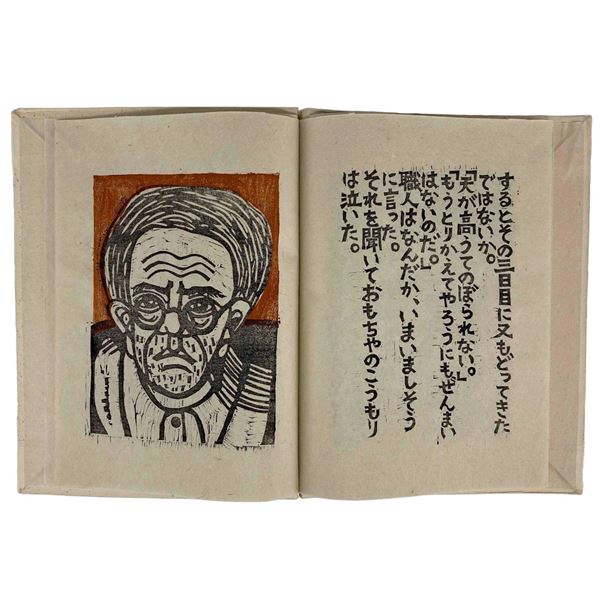 するとその三日目に又もどってきた
ではないか。
「天が高うてのぼられない。」
「もうとりかえてやろうにもぜんまい
はないのだ。」
職人はなんだか、いまいましそう
に言った。
それを聞いておもちゃのこうもり
は泣いた。